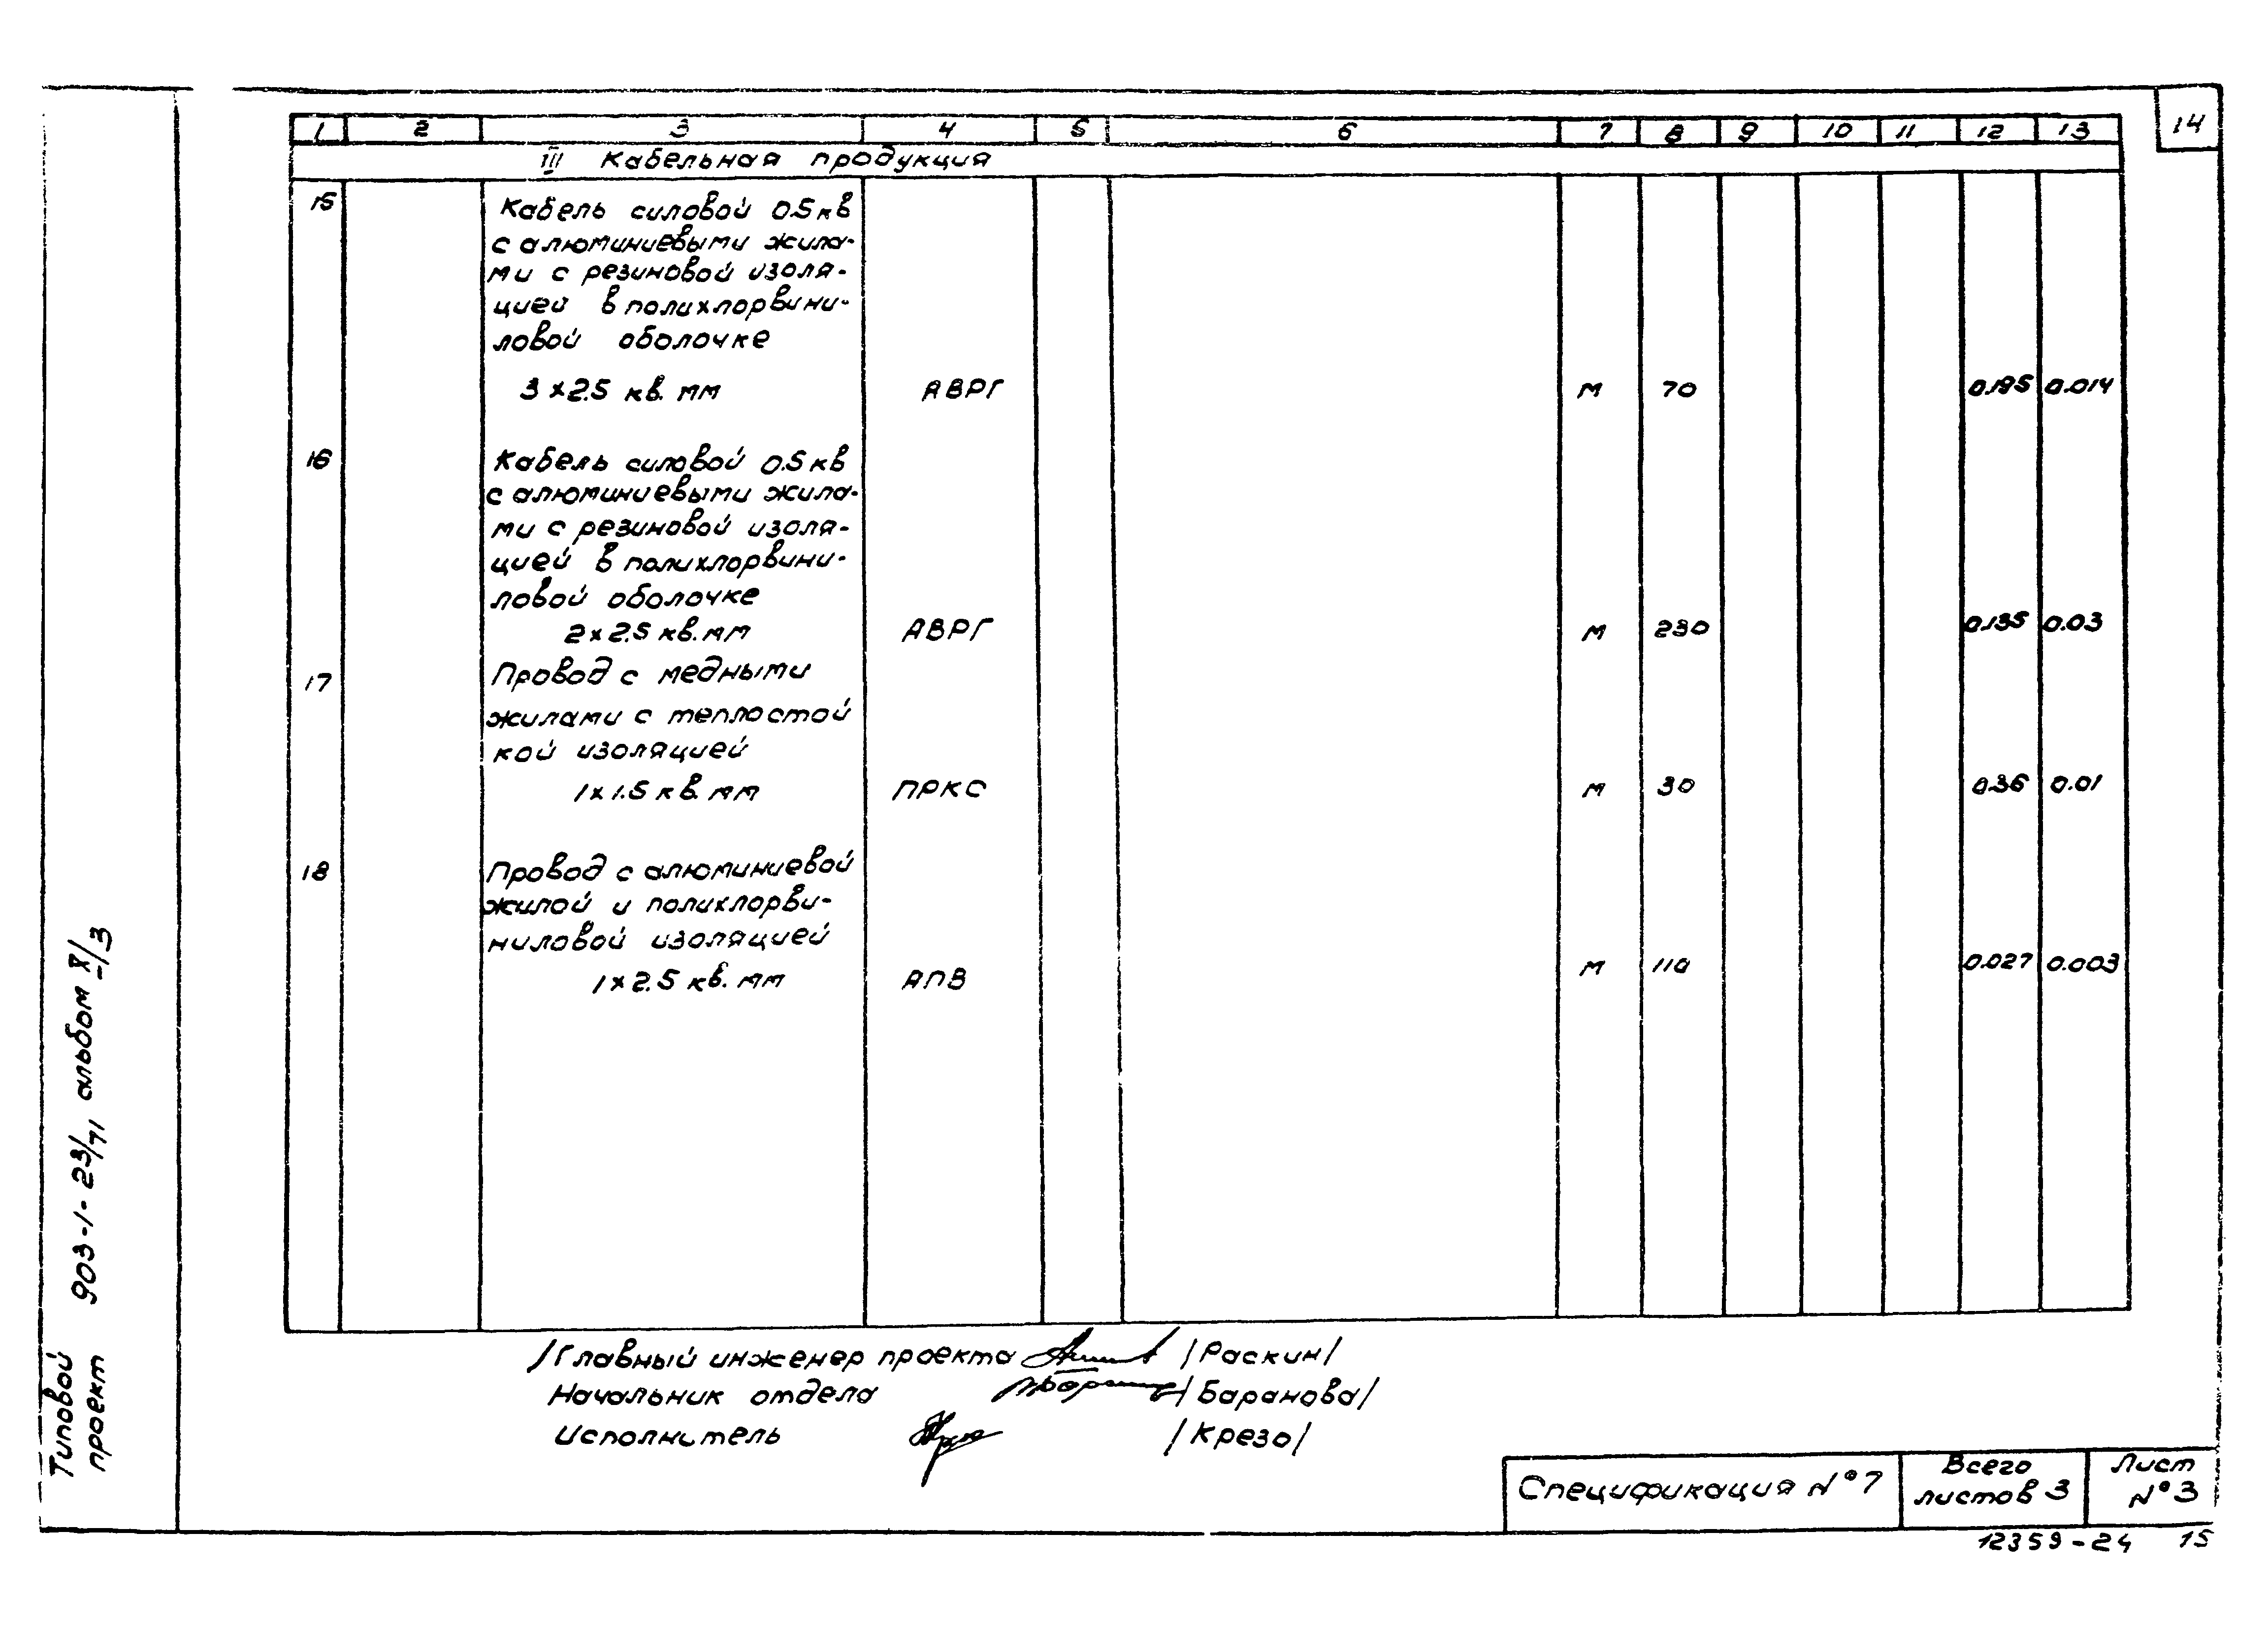 14
1 2 3 4 5 6 7 8 9 10 11 12 13
III Кабельная продукция
15 Кабель силовой 0.5 кв
с алюминиевыми жила-
ми с резиновой изоля-
цией в полихлорвини-
ловой оболочке
3 x 2.5 кв. мм АВРГ м 70 0.195 0.014
16 Кабель силовой 0.5 кв
с алюминиевыми жила-
ми с резиновой изоля-
цией в полихлорвини-
ловой оболочке
2 x 2.5 кв. мм АВРГ м 230 0.135 0.03
17 Провод с медными
жилами с теплостой
кой изоляцией
1 x 1.5 кв. мм ПРКС м 30 0.36 0.01
18 Провод с алюминиевой
жилой и полихлорви-
ниловой изоляцией
1 x 2.5 кв. мм АПВ м 110 0.027 0.003
/Главный инженер проекта /Раскин/
Начальник отдела /Баранова/
Исполнитель /Крезо/
Типовой
проект 903-1-23/71 альбом X/3
Спецификация №7
Всего
листов 3
Лист
№3
12359-24 15